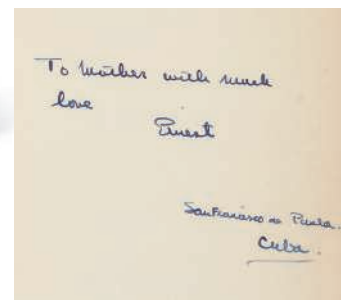 To Mother with much
love
Ernest
San Francisco de Paula.
Cuba.